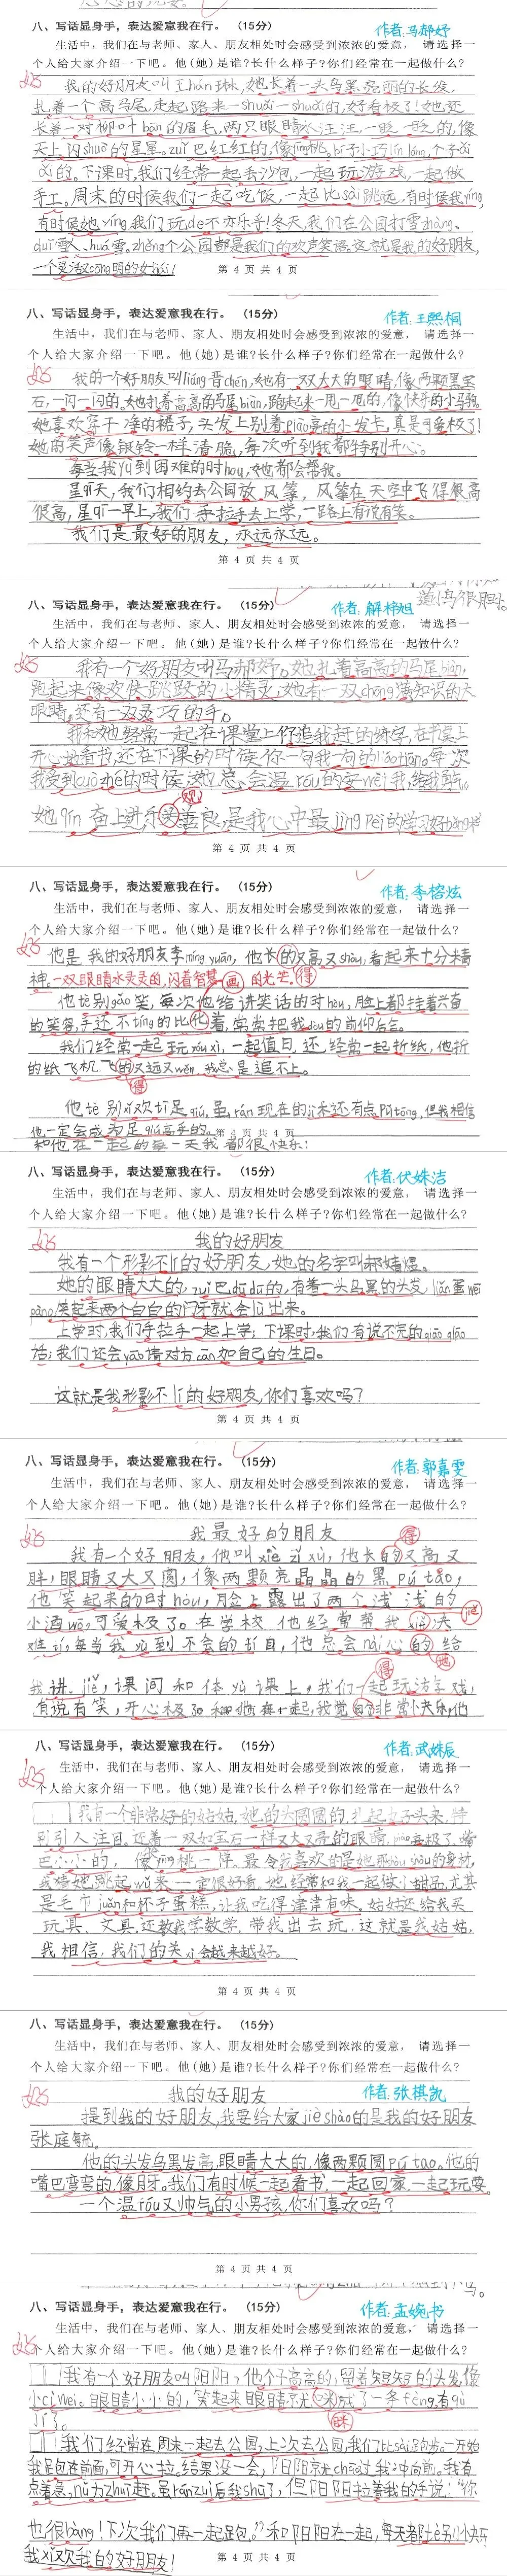 八、写话显身手，表达爱意我在行。（15分）
作者:马郝妤
生活中，我们在与老师、家人、朋友相处时会感受到浓浓的爱意， 请选择一
个人给大家介绍一下吧。他(她)是谁?长什么样子?你们经常在一起做什么?
好
我的好朋友叫王hán琳，她长着一头乌黑亮丽的长发，
扎着一个高马尾，走起路来一shuǎi一shuǎi的，好看极了！她还
长着一对柳叶bān的眉毛，两只眼睛水汪汪，一眨一眨的，像
天上闪shuò的星星。zuǐ巴红红的，像yīng桃。bí子小巧líng lóng，个子ǎi
ǎi的。下课时，我们经常一起丢沙包，一起玩游戏，一起做
手工。周末的时候我们一起吃饭，一起比sài跳远，有时候我yíng，
有时候她yíng，我们玩de不亦乐乎！冬天，我们在公园打雪zhàng、
duī雪人、huá雪。zhěng个公园都是我们的欢声笑语。这就是我的好朋友，
一个灵活又cōng明的女hái！
第 4 页 共 4 页
八、写话显身手，表达爱意我在行。（15分）
作者:王熙桐
生活中，我们在与老师、家人、朋友相处时会感受到浓浓的爱意， 请选择一
个人给大家介绍一下吧。他(她)是谁?长什么样子?你们经常在一起做什么?
好
我的一个好朋友叫liáng晋chén，她有一双大大的眼睛，像两颗黑宝
石，一闪一闪的。她扎着高高的马尾biàn，跑起来一甩一甩的，像快乐的小马驹。
她喜欢穿干净的裙子，头发上别着piào亮的小发卡，真是可爱极了！
她的笑声像银铃一样清脆，每次听到我都特别开心。
每当我yù到困难的时hou，她都会帮我。
星qī天，我们相约去公园放风筝，风筝在天空中飞得很高
很高，星qī一早上，我们手拉手去上学，一路上有说有笑。
我们是最好的朋友，永远永远。
第 4 页 共 4 页
八、写话显身手，表达爱意我在行。（15分）
作者:解梓旭
生活中，我们在与老师、家人、朋友相处时会感受到浓浓的爱意， 请选择一
个人给大家介绍一下吧。他(她)是谁?长什么样子?你们经常在一起做什么?
好
我有一个好朋友叫马郝妤，她扎着高高的马尾biàn，
跑起来像欢快跳跃的小精灵，她有一双chōng满知识的大
眼睛，还有一双灵巧的手。
我和她经常一起在课堂上你追我赶的练字，在书桌上
开心地看书，还在下课的时候你一句我一句的liáo tiān。每次
我受到cuò zhé的时候，她总会温róu的安wèi我，给我鼓气。
她qín奋上进乐
善良，是我心中最jìng pèi的学习好bǎng样
观
第 4 页 共 4 页
八、写话显身手，表达爱意我在行。（15分）
作者:李榕炫
生活中，我们在与老师、家人、朋友相处时会感受到浓浓的爱意， 请选择一
个人给大家介绍一下吧。他(她)是谁?长什么样子?你们经常在一起做什么?
好
他是我的好朋友李míng yuān，他长的又高又shòu，看起来十分精
神。一双眼睛水灵灵的，闪着智慧 的光芒。得
他tè别gǎo笑，每次他给讲笑话的时hou，脸上都挂着兴奋
的笑容，手还不tíng的比 着，常常把我dòu的前仰后合。
我们经常一起玩yóu xì，一起值日，还经常一起折纸，他折
的纸飞机飞的又远又wěn，我总是追不上。
得
他tè别xǐ欢tī足qiú，虽rán现在的jì术还有点pǔ tōng，但我相信
他一定会成为足qiú高手的。
第 4 页 共 4 页
和他在一起的每一天我都很快乐！
八、写话显身手，表达爱意我在行。（15分）
作者:伏姝洁
生活中，我们在与老师、家人、朋友相处时会感受到浓浓的爱意， 请选择一
个人给大家介绍一下吧。他(她)是谁?长什么样子?你们经常在一起做什么?
好
我的好朋友
我有一个形影不lí的好朋友，她的名字叫郝婧煜。
她的眼睛大大的，zuǐ巴dū dū的，有着一头乌黑的头发，liǎn蛋wēi
pàng，笑起来两个白白的门牙就会lù出来。
上学时，我们手拉手一起上学；下课时，我们有说不完的qiāo qiāo
话；我们还会yāo请对方cān加自己的生日。
这就是我形影不lí的好朋友，你们喜欢吗？
第 4 页 共 4 页
八、写话显身手，表达爱意我在行。（15分）
作者:郭嘉雯
生活中，我们在与老师、家人、朋友相处时会感受到浓浓的爱意， 请选择一
个人给大家介绍一下吧。他(她)是谁?长什么样子?你们经常在一起做什么?
好
我最好的朋友
得
我有一个好朋友，他叫xiè zǐ xù，他长的又高又
胖，眼睛又大又圆，像两颗亮晶晶的黑pú táo，
他笑起来的时hòu，脸上露出了两个浅浅的
小酒wō，可爱极了。在学校他经常帮我 决
难tí，每当我yù到不会的tí目，他总会nài心的给
我讲jiě，课间和体yù课上，我们一起玩游戏，
有说有笑，开心极了。和他在一起，我觉的非常快乐，他
八、写话显身手，表达爱意我在行。（15分）
作者:武姝辰
生活中，我们在与老师、家人、朋友相处时会感受到浓浓的爱意， 请选择一
个人给大家介绍一下吧。他(她)是谁?长什么样子?你们经常在一起做什么?
好
我有一个非常好的姑姑，她的头圆圆的，扎起丸子头来特
别引人注目。还有一双如宝石一样又大又亮的眼睛，piào亮极了，嘴
巴小小的，像yīng桃一样。最令我喜欢的是她那shòu shòu的身材，
我猜她跳起wǔ来一定很好看。她经常和我一起做小甜品，尤其
是毛巾juǎn和杯子蛋糕，让我吃得津津有味。姑姑还给我买
玩具、文具，还教我学数学，带我出去玩，这就是我姑姑，
我相信，我们的关xì会越来越好。
第 4 页 共 4 页
八、写话显身手，表达爱意我在行。（15分）
生活中，我们在与老师、家人、朋友相处时会感受到浓浓的爱意， 请选择一
个人给大家介绍一下吧。他(她)是谁?长什么样子?你们经常在一起做什么?
好
我的好朋友
作者:张棋凯
提到我的好朋友，我要给大家jiè shào的是我的好朋友
张庭毓。
他的头发乌黑发亮，眼睛大大的，像两颗圆pú tao。他的
嘴巴弯弯的像月牙。我们有时候一起看书，一起回家，一起玩耍。
一个温róu又帅气的小男孩，你们喜欢吗？
第 4 页 共 4 页
八、写话显身手，表达爱意我在行。（15分）
作者:孟婉书
生活中，我们在与老师、家人、朋友相处时会感受到浓浓的爱意， 请选择一
个人给大家介绍一下吧。他(她)是谁?长什么样子?你们经常在一起做什么?
好
我有一个好朋友叫阳阳，他个子高高的，留着短短的头发，像
小cì wei。眼睛小小的，笑起来眼睛就 成了一条fèng，有qù
jí了。
眯
我们经常在周末一起去公园，上次去公园，我们比sài跑步。一开始
我跑在前面，可开心拉。结果没一会，阳阳就chāo过我冲向前。我有
点着急，nǔ力zhuī赶。虽rán zuì后我shū了，但阳阳拉着我的手说：“你
也很bàng！下次我们再一起跑。”和阳阳在一起，每天都tè别快乐
我xǐ欢我的好朋友！
第 4 页 共 4 页